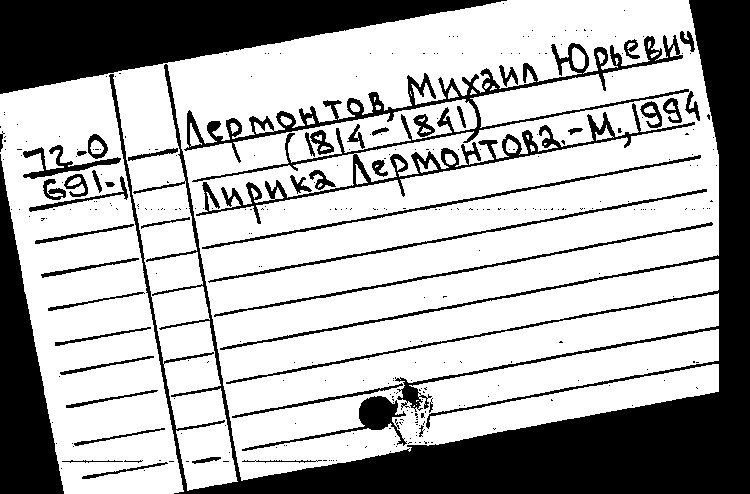 Лермонтов, Михаил Юрьевич
(1814-1841)
72-0
691-1
Лирика Лермонтова.-М.,1994.